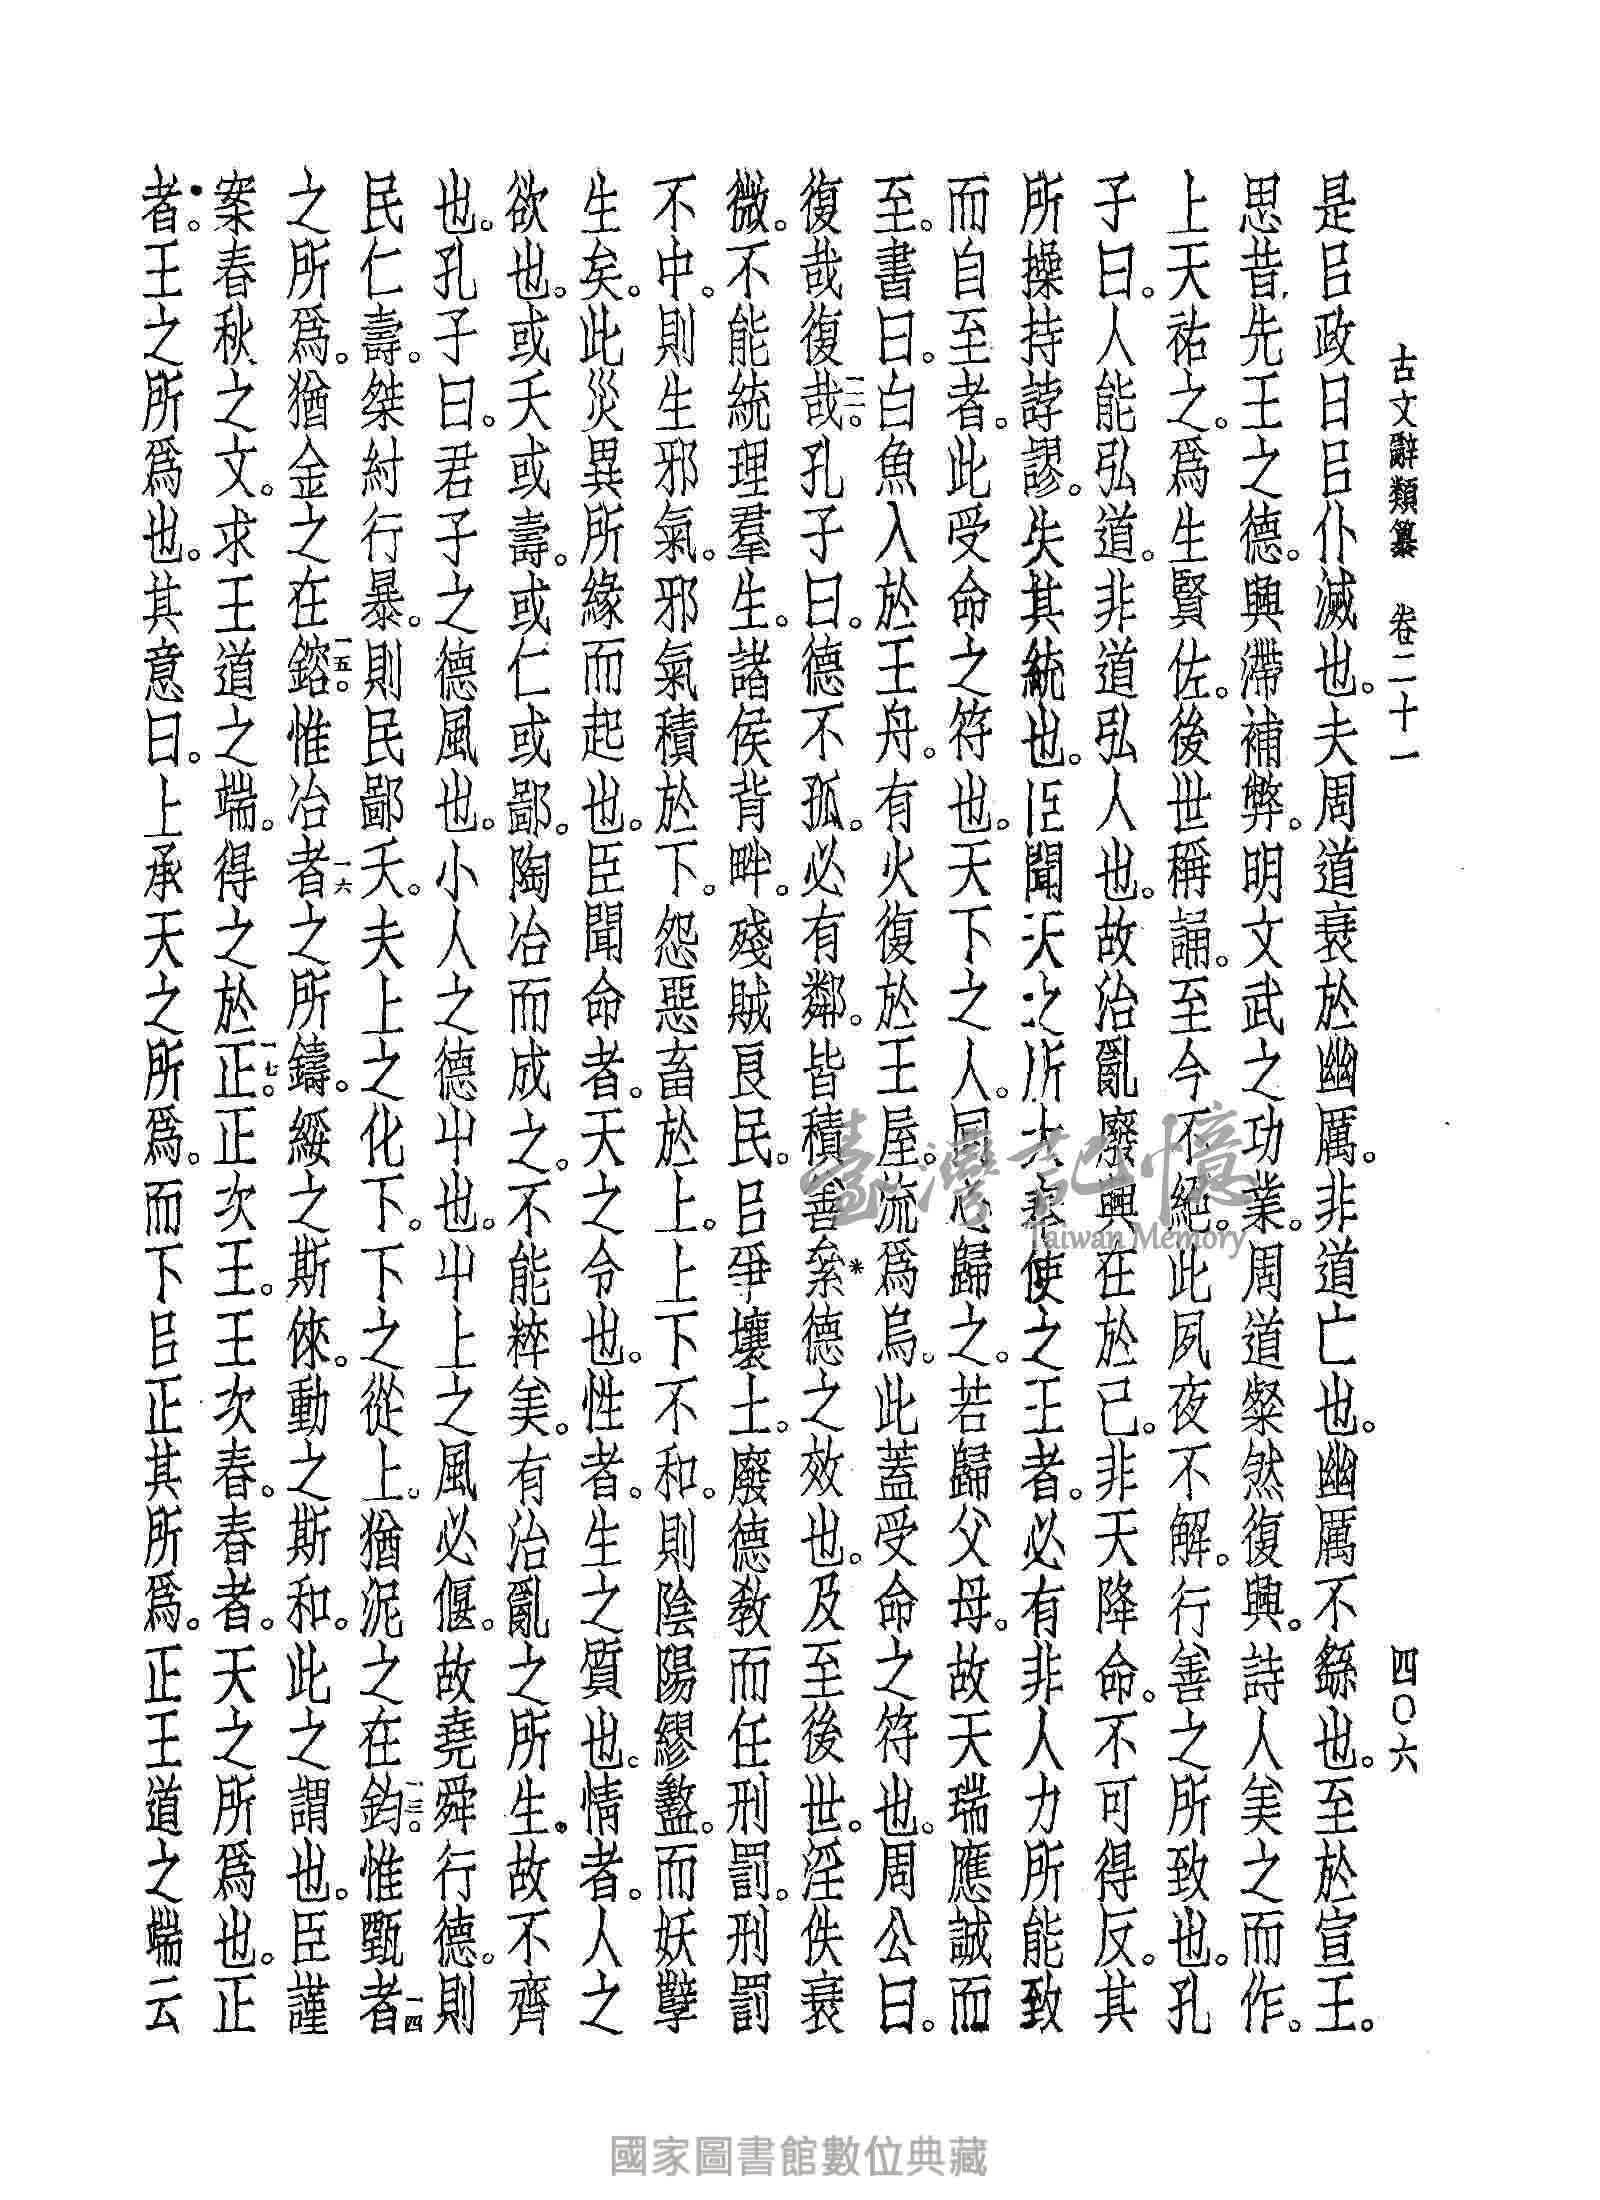 古文辭類纂　卷二十一　四〇六
是㠯政日㠯仆滅也。夫周道衰於幽厲。非道亡也。幽厲不繇也。至於宣王。
思昔先王之德。興滯補弊。明文武之功業。周道粲然復興。詩人美之而作。
上天祐之。爲生賢佐。後世稱誦。至今不絕。此夙夜不解。行善之所致也。孔
子曰。人能弘道。非道弘人也。故治亂廢興在於己。非天降命。不可得反。其
所操持誖謬。失其統也。臣聞天之所大奉使之王者。必有非人力所能致
而自至者。此受命之符也。天下之人。同心歸之。若歸父母。故天瑞應誠而
至。書曰。白魚入於王舟。有火復於王屋。流爲烏。此蓋受命之符也。周公曰。
復哉復哉一二。孔子曰。德不孤。必有鄰。皆積善絫*德之效也。及至後世。淫佚衰
微。不能統理羣生。諸侯背畔。殘賊良民。㠯爭壤土。廢德教而任刑罰。刑罰
不中。則生邪氣。邪氣積於下。怨惡畜於上。上下不和。則陰陽繆盭。而妖孽
生矣。此災異所緣而起也。臣聞命者。天之令也。性者。生之質也。情者。人之
欲也。或夭或壽。或仁或鄙。陶冶而成之。不能粹美。有治亂之所生。故不齊
也。孔子曰。君子之德風也。小人之德屮也。屮上之風必偃。故堯舜行德。則
民仁壽。桀紂行暴。則民鄙夭。夫上之化下。下之從上。猶泥之在鈞一三。惟甄者一四
之所爲。猶金之在鎔一五。惟冶者一六之所鑄。綏之斯倈。動之斯和。此之謂也。臣謹
案春秋之文。求王道之端。得之於正一七。正次王。王次春。春者。天之所爲也。正
者。王之所爲也。其意曰。上承天之所爲。而下㠯正其所爲。正王道之端云
臺灣記憶
Taiwan Memory
國家圖書館數位典藏